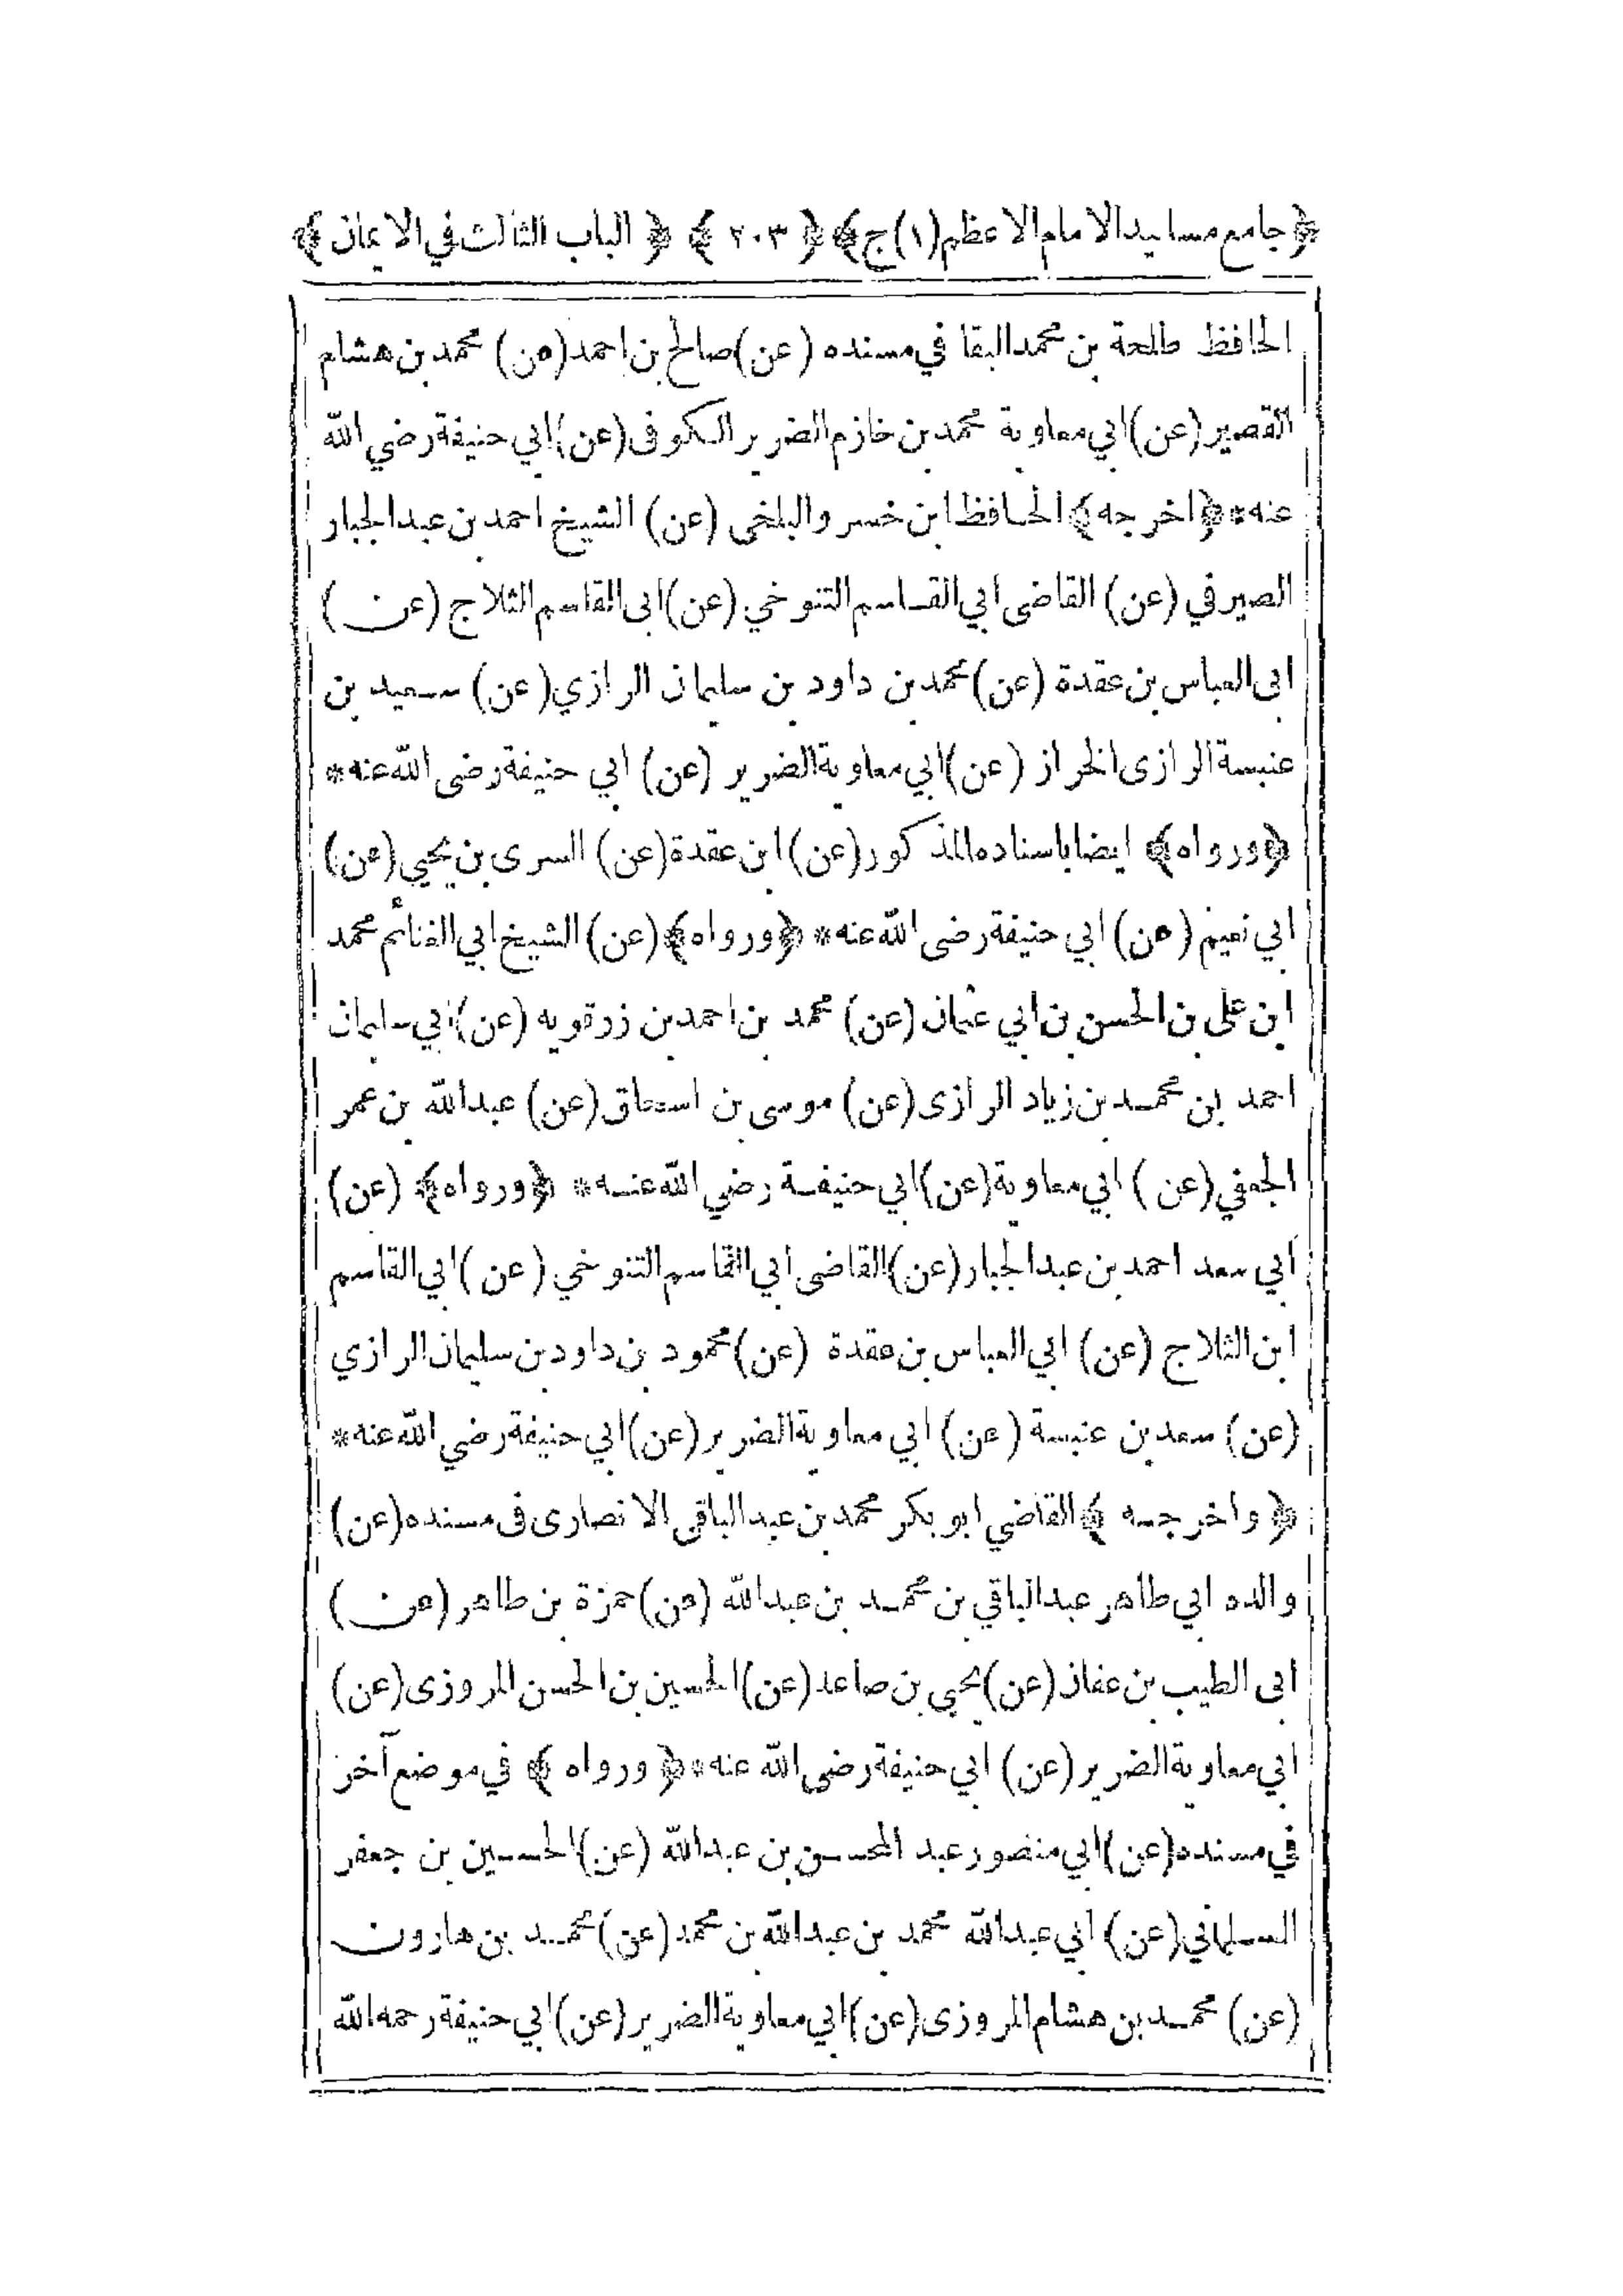 ﴿جامع مسانيد الامام الاعظم(١)ج﴾ ﴿ ٢٠٣ ﴾ ﴿ الباب الثالث في الايمان ﴾
الحافظ طلحة بن محمد البقا في مسنده (عن) صالح بن احمد (عن) محمد بن هشام
القصير (عن) ابي معاوية محمد بن خازم الضرير الكوفى (عن) ابي حنيفة رضي الله
عنه * ﴿اخرجه﴾ الحافظ ابن خسر والبلخى (عن) الشيخ احمد بن عبد الجبار
الصيرفي (عن) القاضى ابي القاسم التنوخي (عن) ابى القاسم الثلاج (عن)
ابى العباس بن عقدة (عن) محمد بن داود بن سليمان الرازي (عن) سعيد بن
عنبسة الرازى الخراز (عن) ابي معاوية الضرير (عن) ابي حنيفة رضى الله عنه *
﴿ورواه﴾ ايضا باسناده المذكور (عن) ابن عقدة (عن) السرى بن يحيي (عن)
ابي نعيم (عن) ابي حنيفة رضى الله عنه * ﴿ورواه﴾ (عن) الشيخ ابي الغنائم محمد
ابن على بن الحسن بن ابي عثمان (عن) محمد بن احمد بن زرقويه (عن) ابي سليمان
احمد بن محمد بن زياد الرازى (عن) موسى بن اسحاق (عن) عبد الله بن عمر
الجعفي (عن) ابي معاوية (عن) ابي حنيفة رضي الله عنه * ﴿ورواه﴾ (عن)
ابي سعد احمد بن عبد الجبار (عن) القاضى ابي القاسم التنوخي (عن) ابي القاسم
ابن الثلاج (عن) ابي العباس بن عقدة (عن) محمود بن داود بن سليمان الرازي
(عن) سعد بن عنبسة (عن) ابي معاوية الضرير (عن) ابي حنيفة رضي الله عنه *
﴿ واخرجه ﴾ القاضي ابو بكر محمد بن عبد الباقى الانصارى فى مسنده (عن)
والده ابي طاهر عبد الباقي بن محمد بن عبد الله (عن) حمزة بن طاهر (عن)
ابى الطيب بن عفان (عن) يحيي بن صاعد (عن) الحسين بن الحسن المروزى (عن)
ابي معاوية الضرير (عن) ابي حنيفة رضى الله عنه * ﴿ ورواه ﴾ في موضع آخر
في مسنده (عن) ابي منصور عبد المحسن بن عبد الله (عن) الحسين بن جعفر
السلماني (عن) ابي عبد الله محمد بن عبد الله بن محمد (عن) محمد بن هارون
(عن) محمد بن هشام المروزى (عن) ابي معاوية الضرير (عن) ابي حنيفة رحمه الله